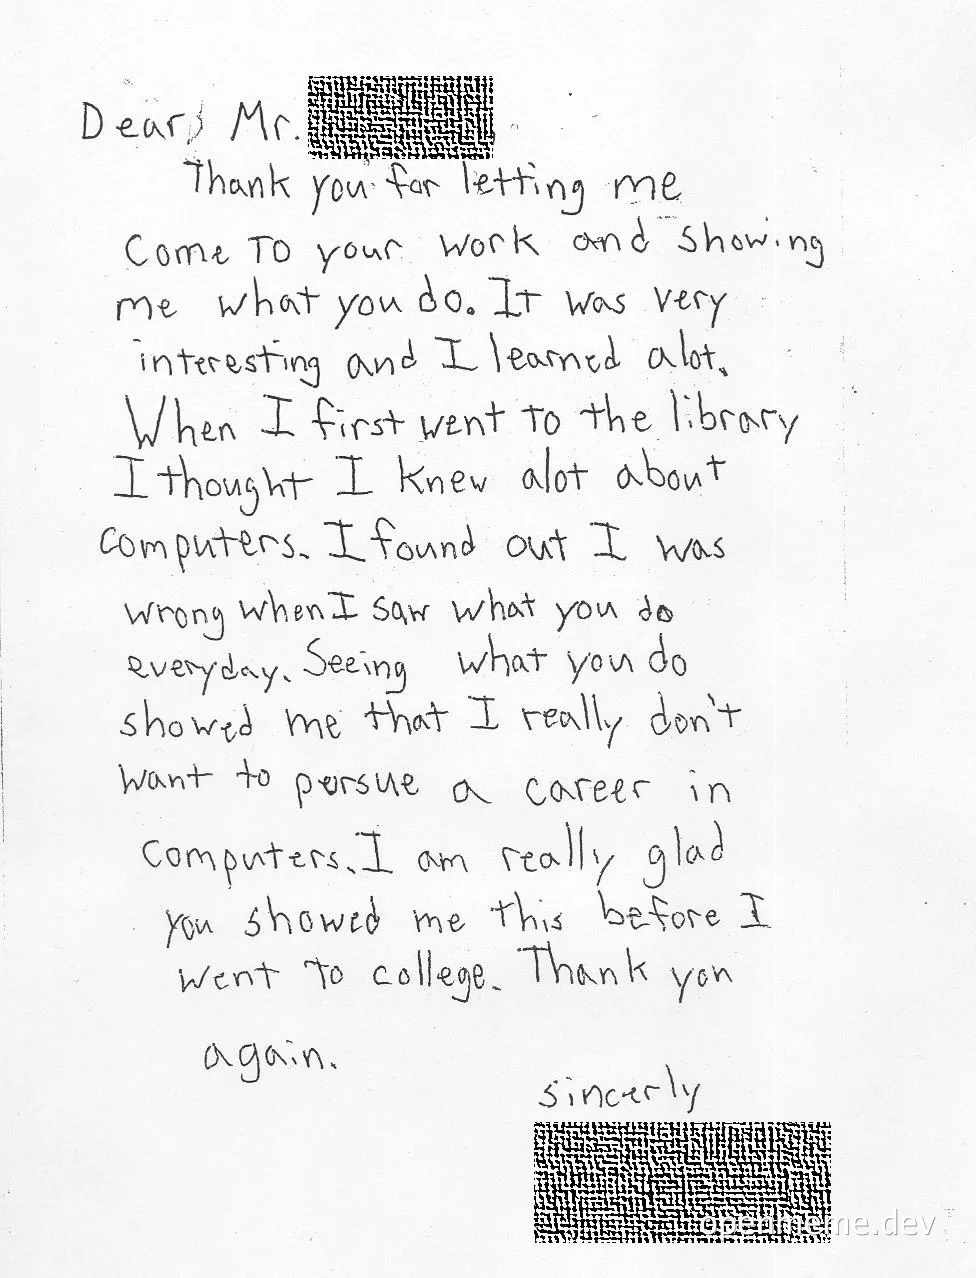 Dear, Mr.
Thank you for letting me
Come To your work and showing
me what you do. It was very
interesting and I learned alot.
When I first went to the library
I thought I knew alot about
computers. I found out I was
wrong when I saw what you do
everyday. Seeing what you do
showed me that I really don't
want to persue a career in
computers. I am really glad
you showed me this before I
went to college. Thank you
again.
sincerly
openmeme.dev